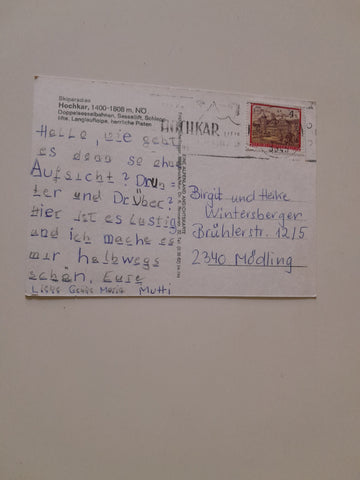 Skiparadies
Hochkar, 1400-1808 m, NÖ
Doppelsesselbahnen, Sessellift, Schlepp-
lifte, Langlaufloipe, herrliche Pisten
HOCHKAR
Hallo, wie geht
es denn so ohne
Aufsicht? Drun
ter und Drüber?
Hier ist es lustig
und ich mache es
mir halbwegs
schön. Eure
Mutti
Birgit und Heike
Wintersberger
Brühlerstr. 12/5
2340 Mödling